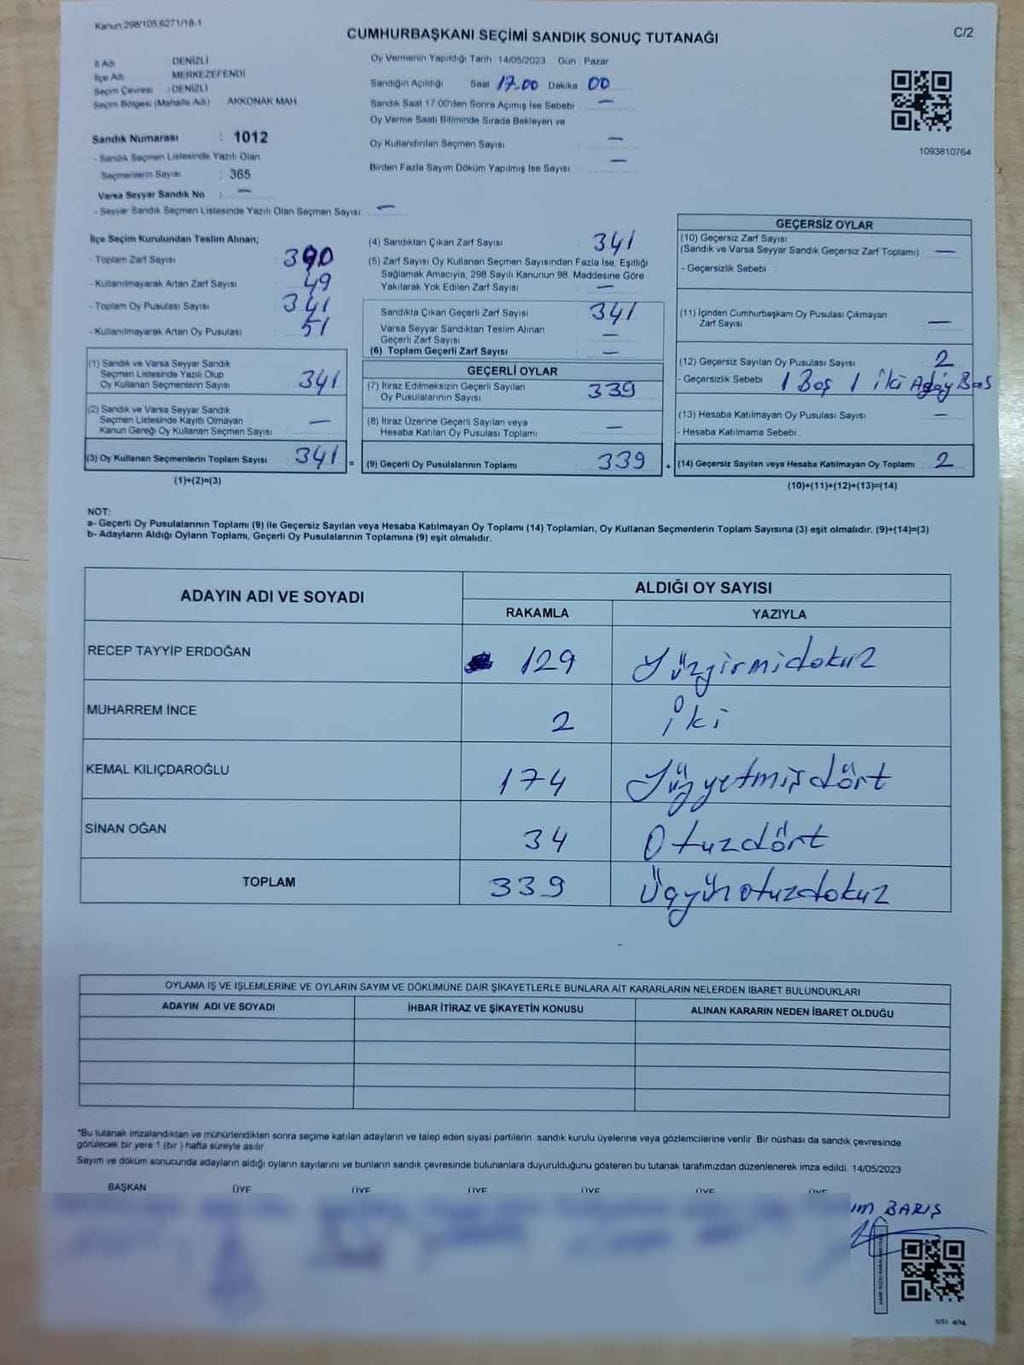 Kanun 298/105,6271/18-1
CUMHURBAŞKANI SEÇİMİ SANDIK SONUÇ TUTANAĞI
C/2
İl Adı : DENİZLİ
İlçe Adı : MERKEZEFENDİ
Seçim Çevresi : DENİZLİ
Seçim Bölgesi (Mahalle Adı) : AKKONAK MAH
Sandık Numarası : 1012
- Sandık Seçmen Listesinde Yazılı Olan
Seçmenlerin Sayısı : 365
Varsa Seyyar Sandık No : —
- Seyyar Sandık Seçmen Listesinde Yazılı Olan Seçmen Sayısı: —
Oy Vermenin Yapıldığı Tarih 14/05/2023 Gün : Pazar
Sandığın Açıldığı Saat 17.00 Dakika 00
Sandık Saat 17:00'den Sonra Açılmış İse Sebebi : —
Oy Verme Saati Bitiminde Sırada Bekleyen ve
Oy Kullandırılan Seçmen Sayısı : —
Birden Fazla Sayım Döküm Yapılmış İse Sayısı : —
1093810764
İlçe Seçim Kurulundan Teslim Alınan;
- Toplam Zarf Sayısı : 390
- Kullanılmayarak Artan Zarf Sayısı : 49
- Toplam Oy Pusulası Sayısı : 341
- Kullanılmayarak Artan Oy Pusulası : 51
(1) Sandık ve Varsa Seyyar Sandık
Seçmen Listesinde Yazılı Olup
Oy Kullanan Seçmenlerin Sayısı : 341
(2) Sandık ve Varsa Seyyar Sandık
Seçmen Listesinde Kayıtlı Olmayan
Kanun Gereği Oy Kullanan Seçmen Sayısı : —
(3) Oy Kullanan Seçmenlerin Toplam Sayısı : 341 =
(1)+(2)=(3)
(4) Sandıktan Çıkan Zarf Sayısı : 341
(5) Zarf Sayısı Oy Kullanan Seçmen Sayısından Fazla İse, Eşitliği
Sağlamak Amacıyla, 298 Sayılı Kanunun 98. Maddesine Göre
Yakılarak Yok Edilen Zarf Sayısı : —
Sandıkta Çıkan Geçerli Zarf Sayısı : 341
Varsa Seyyar Sandıktan Teslim Alınan
Geçerli Zarf Sayısı : —
(6) Toplam Geçerli Zarf Sayısı : —
GEÇERLİ OYLAR
(7) İtiraz Edilmeksizin Geçerli Sayılan
Oy Pusulalarının Sayısı : 339
(8) İtiraz Üzerine Geçerli Sayılan veya
Hesaba Katılan Oy Pusulası Toplamı : —
(9) Geçerli Oy Pusulalarının Toplamı : 339 +
GEÇERSİZ OYLAR
(10) Geçersiz Zarf Sayısı
(Sandık ve Varsa Seyyar Sandık Geçersiz Zarf Toplamı) : —
- Geçersizlik Sebebi :
(11) İçinden Cumhurbaşkanı Oy Pusulası Çıkmayan
Zarf Sayısı : —
(12) Geçersiz Sayılan Oy Pusulası Sayısı : 2
- Geçersizlik Sebebi : 1 Boş 1 iki Aday
(13) Hesaba Katılmayan Oy Pusulası Sayısı : —
- Hesaba Katılmama Sebebi :
(14) Geçersiz Sayılan veya Hesaba Katılmayan Oy Toplamı : 2
(10)+(11)+(12)+(13)=(14)
NOT:
a- Geçerli Oy Pusulalarının Toplamı (9) ile Geçersiz Sayılan veya Hesaba Katılmayan Oy Toplamı (14) Toplamları, Oy Kullanan Seçmenlerin Toplam Sayısına (3) eşit olmalıdır. (9)+(14)=(3)
b- Adayların Aldığı Oyların Toplamı, Geçerli Oy Pusulalarının Toplamına (9) eşit olmalıdır.
ADAYIN ADI VE SOYADI
ALDIĞI OY SAYISI
RAKAMLA YAZIYLA
RECEP TAYYİP ERDOĞAN 129 Yüzyirmidokuz
MUHARREM İNCE 2 iki
KEMAL KILIÇDAROĞLU 174 Yüzyetmişdört
SİNAN OĞAN 34 Otuzdört
TOPLAM 339 Üçyüzotuzdokuz
OYLAMA İŞ VE İŞLEMLERİNE VE OYLARIN SAYIM VE DÖKÜMÜNE DAİR ŞİKAYETLERLE BUNLARA AİT KARARLARIN NELERDEN İBARET BULUNDUKLARI
ADAYIN ADI VE SOYADI İHBAR İTİRAZ VE ŞİKAYETİN KONUSU ALINAN KARARIN NEDEN İBARET OLDUĞU
*Bu tutanak imzalandıktan ve mühürlendikten sonra seçime katılan adayların ve talep eden siyasi partilerin sandık kurulu üyelerine veya gözlemcilerine verilir. Bir nüshası da sandık çevresinde
görülecek bir yere 1 (bir) hafta süreyle asılır
Sayım ve döküm sonucunda adayların aldığı oyların sayılarını ve bunların sandık çevresinde bulunanlara duyurulduğunu gösteren bu tutanak tarafımızdan düzenlenerek imza edildi. 14/05/2023
BAŞKAN ÜYE ÜYE ÜYE ÜYE ÜYE ÜYE
BARIŞ